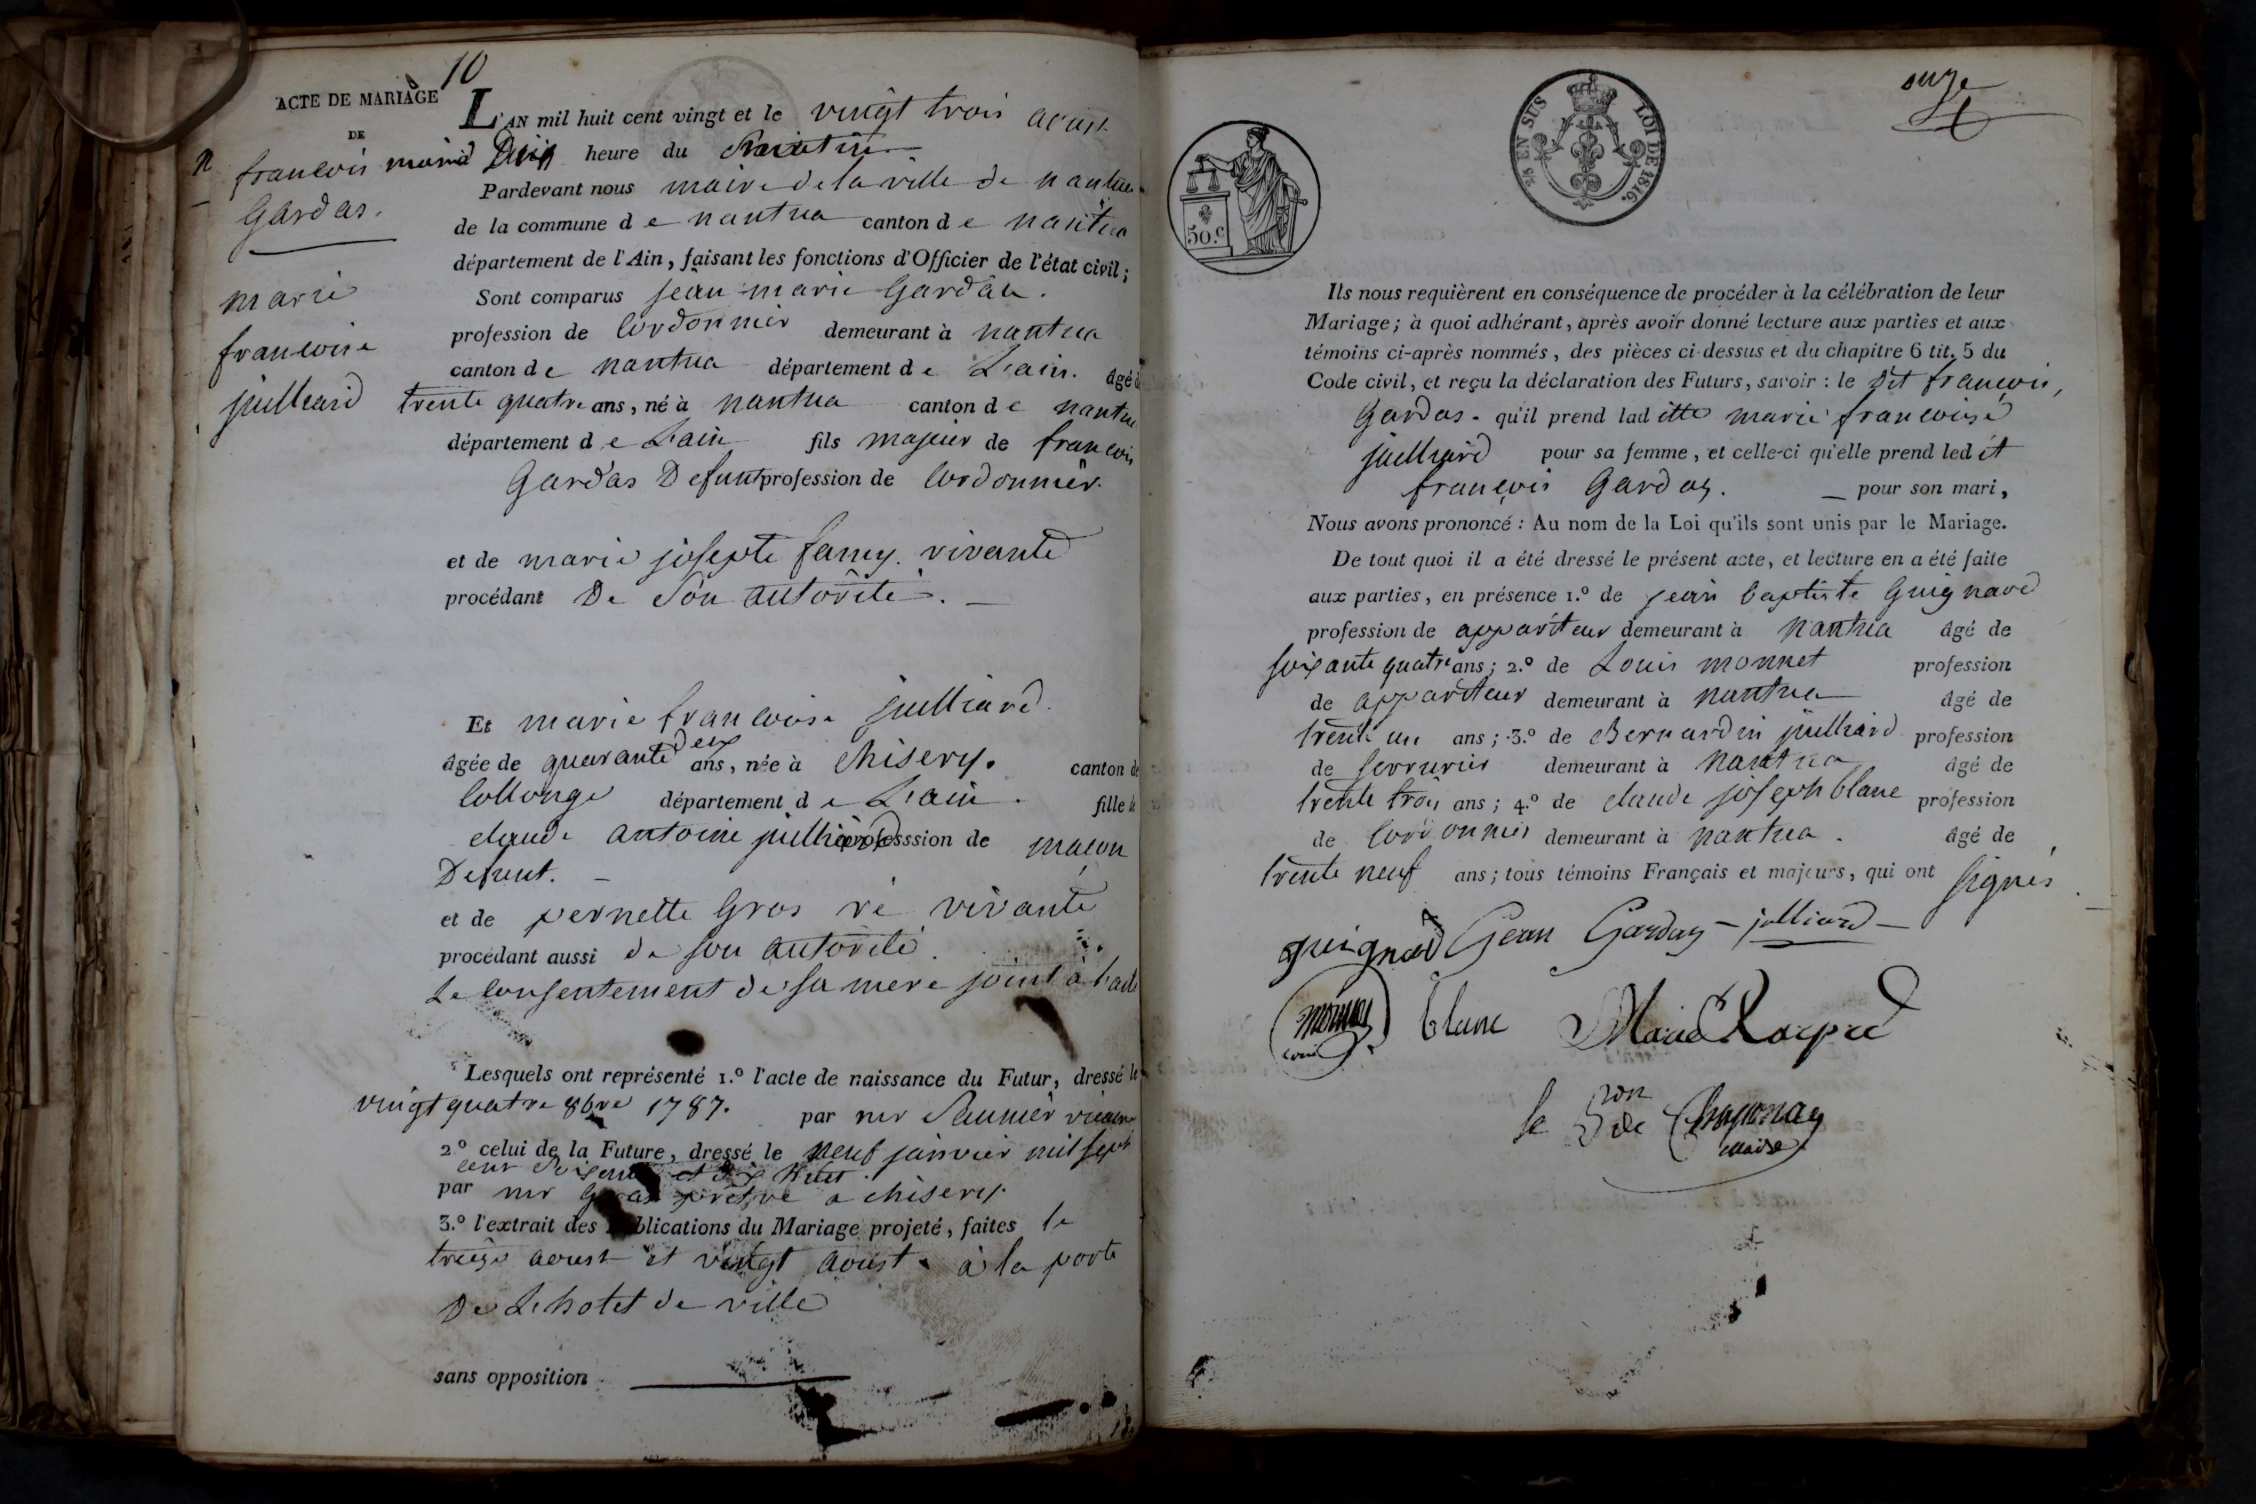 10
ACTE DE MARIAGE
DE
n françois marie
Gardas.
marie
francoise
juilliard
L'AN mil huit cent vingt et le vingt trois aoust
heure du
Pardevant nous maire de la ville de nantua
de la commune d e nantua canton d e nantua
département de l'Ain, faisant les fonctions d'Officier de l'état civil;
Sont comparus jean marie Gardas.
profession de Cordonnier demeurant à nantua
canton d e nantua département d e L'ain. âgé d
trente quatre ans, né à nantua canton d e nantua
département d e L'ain fils majeur de francois
Gardas Defunt profession de Cordonnier.
et de marie josepte famy. vivante
procédant De Son autorité.
Et marie francoise juilliard.
âgée de quarante deux ans, née à chisery. canton de
Collonge département d e L'ain. fille de
claude antoine juilliard profession de macon
Defunt.
et de pernette Gros re vivante
procédant aussi de son autorité.
Le consentement de sa mere joint à l'acte
Lesquels ont représenté 1.º l'acte de naissance du Futur, dressé le
vingt quatre 8bre 1787. par mr Saunier vicaire
2º celui de la Future, dressé le neuf janvier mil sept
cent Soixante et dix huit.
par mr prêtre a chisery.
3.º l'extrait des Publications du Mariage projeté, faites le
treize aoust et vingt aoust. à la porte
De L'hotel de ville
sans opposition
onze
25 EN SUS LOI DE 1816.
50.c
Ils nous requièrent en conséquence de procéder à la célébration de leur
Mariage; à quoi adhérant, après avoir donné lecture aux parties et aux
témoins ci-après nommés, des pièces ci-dessus et du chapitre 6 tit. 5 du
Code civil, et reçu la déclaration des Futurs, savoir : le dit françois,
Gardas. qu'il prend lad itte marie francoise
juilliard pour sa femme, et celle-ci qu'elle prend led it
françois Gardas. pour son mari,
Nous avons prononcé : Au nom de la Loi qu'ils sont unis par le Mariage.
De tout quoi il a été dressé le présent acte, et lecture en a été faite
aux parties, en présence 1.º de jean baptiste Guignard
profession de appariteur demeurant à nantua âgé de
soixante quatre ans; 2.º de Louis monnet profession
de appariteur demeurant à nantua âgé de
trente un ans; 3.º de Bernardin juilliard profession
de serrurier demeurant à nantua âgé de
trente trois ans; 4.º de claude joseph blanc profession
de Cordonnier demeurant à nantua. âgé de
trente neuf ans; tous témoins Français et majeurs, qui ont signés
guignard Gean Garday - julliard -
blanc
le Bon de
maire